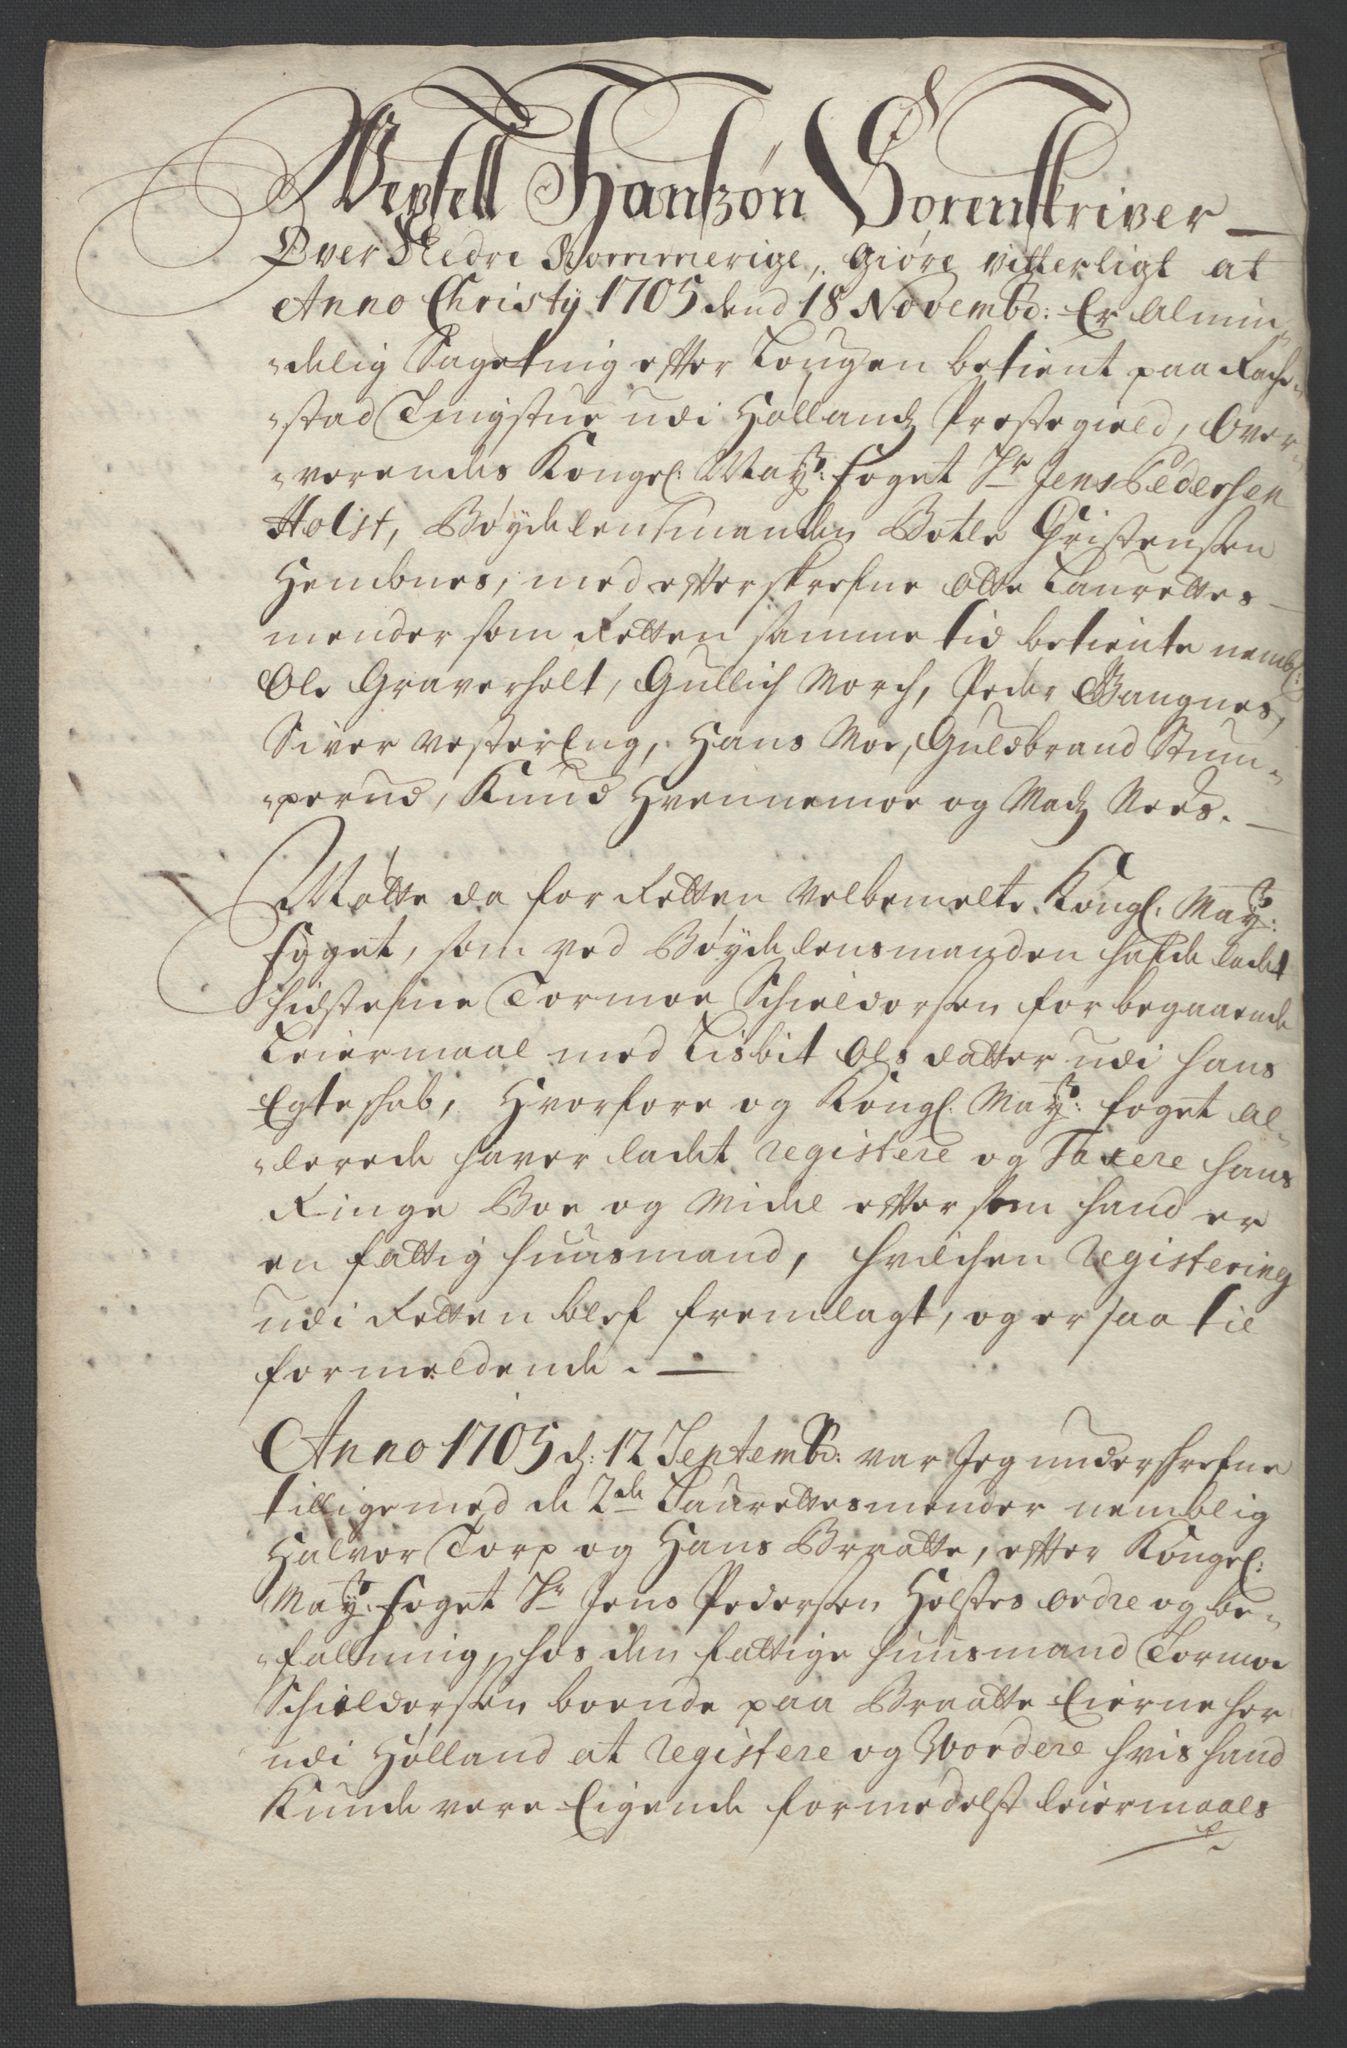 Wexsell Hanszøn Sorenskriver
Over Nedre Rommerige, Giøre vitterligt at
Anno Christy 1705 dend 18 Novembr: Er Almin-
delig Sageting effter Lougen betient paa Rache-
stad Tingstue udi Hollands Præstegield, Over-
verendes Kongel: May: foget Sr Jens Pedersen
Holst, Bøydelensmanden Botle Christensen
Hembnes, med effterskrefne Otte Laurettes-
mender som Retten samme tid betiente nembl:
Ole Graverholt, Gullich Morch, Peder Bangnes,
Siver VesterEng, Hans Moe, Guldbrand Stum-
perud, Knud Hvennemoe og Madz Nees.
Møtte da for Retten velbemelte Kongl: May:
foget, som ved Bøydelensmanden hafde ladet
hidstefne Tormoe Schieldorsen for begaaende
Leiermaal med Lisbit Olsdatter udi hans
Egteschab, Hvorfore og Kongl: May: foget al-
lerede haver ladet registere og Taxere hans
Ringe Boe og Midel effter som hand er
en fattig huusmand, hvilchen registering
udi Retten blef fremlagt, og er saa til
formeldende.
Anno 1705 d: 12 Septembr: var Jeg underschrefne
tillige med de 2de Laurettesmender nemblig
Halvor Torp og Hans Braatte, effter Kongel:
May: foget Sr Jens Pedersen Holstes ordre og be-
falning, hos den fattige huusmand Tormoe
Schieldorsen boende paa Braatte Eierne her
udi Hølland at registere og Vordere hvis hand
Kunde vere Eigende formedelst leiermaals